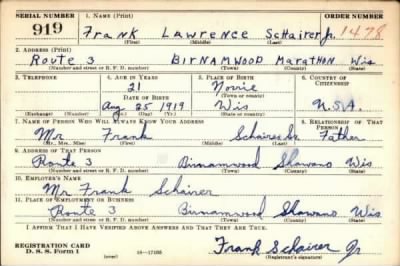 SERIAL NUMBER 1. NAME (Print) ORDER NUMBER
919 Frank Lawrence Schairer Jr. 1478
(First) (Middle) (Last)
2. ADDRESS (Print)
Route 3 Birnamwood Marathon Wis
(Number and street or R. F. D. number) (Town) (County) (State)
3. TELEPHONE 4. AGE IN YEARS 5. PLACE OF BIRTH 6. COUNTRY OF CITIZENSHIP
21 Norrie
DATE OF BIRTH (Town or county)
Aug 25 1919 Wis U.S.A.
(Exchange) (No.) (Mo.) (Day) (Yr.) (State or country)
7. NAME OF PERSON WHO WILL ALWAYS KNOW YOUR ADDRESS 8. RELATIONSHIP OF THAT PERSON
Mr Frank Schairer Sr. Father
(Mr., Mrs., Miss) (First) (Middle) (Last)
9. ADDRESS OF THAT PERSON
Route 3 Birnamwood Shawano Wis
(Number and street or R. F. D. number) (Town) (County) (State)
10. EMPLOYER'S NAME
Mr Frank Schairer
11. PLACE OF EMPLOYMENT OR BUSINESS
Route 3 Birnamwood Shawano Wis
(Number and street or R. F. D. number) (Town) (County) (State)
I AFFIRM THAT I HAVE VERIFIED ABOVE ANSWERS AND THAT THEY ARE TRUE.
REGISTRATION CARD
D. S. S. Form 1 (over) Frank Schairer Jr
(Registrant's signature)